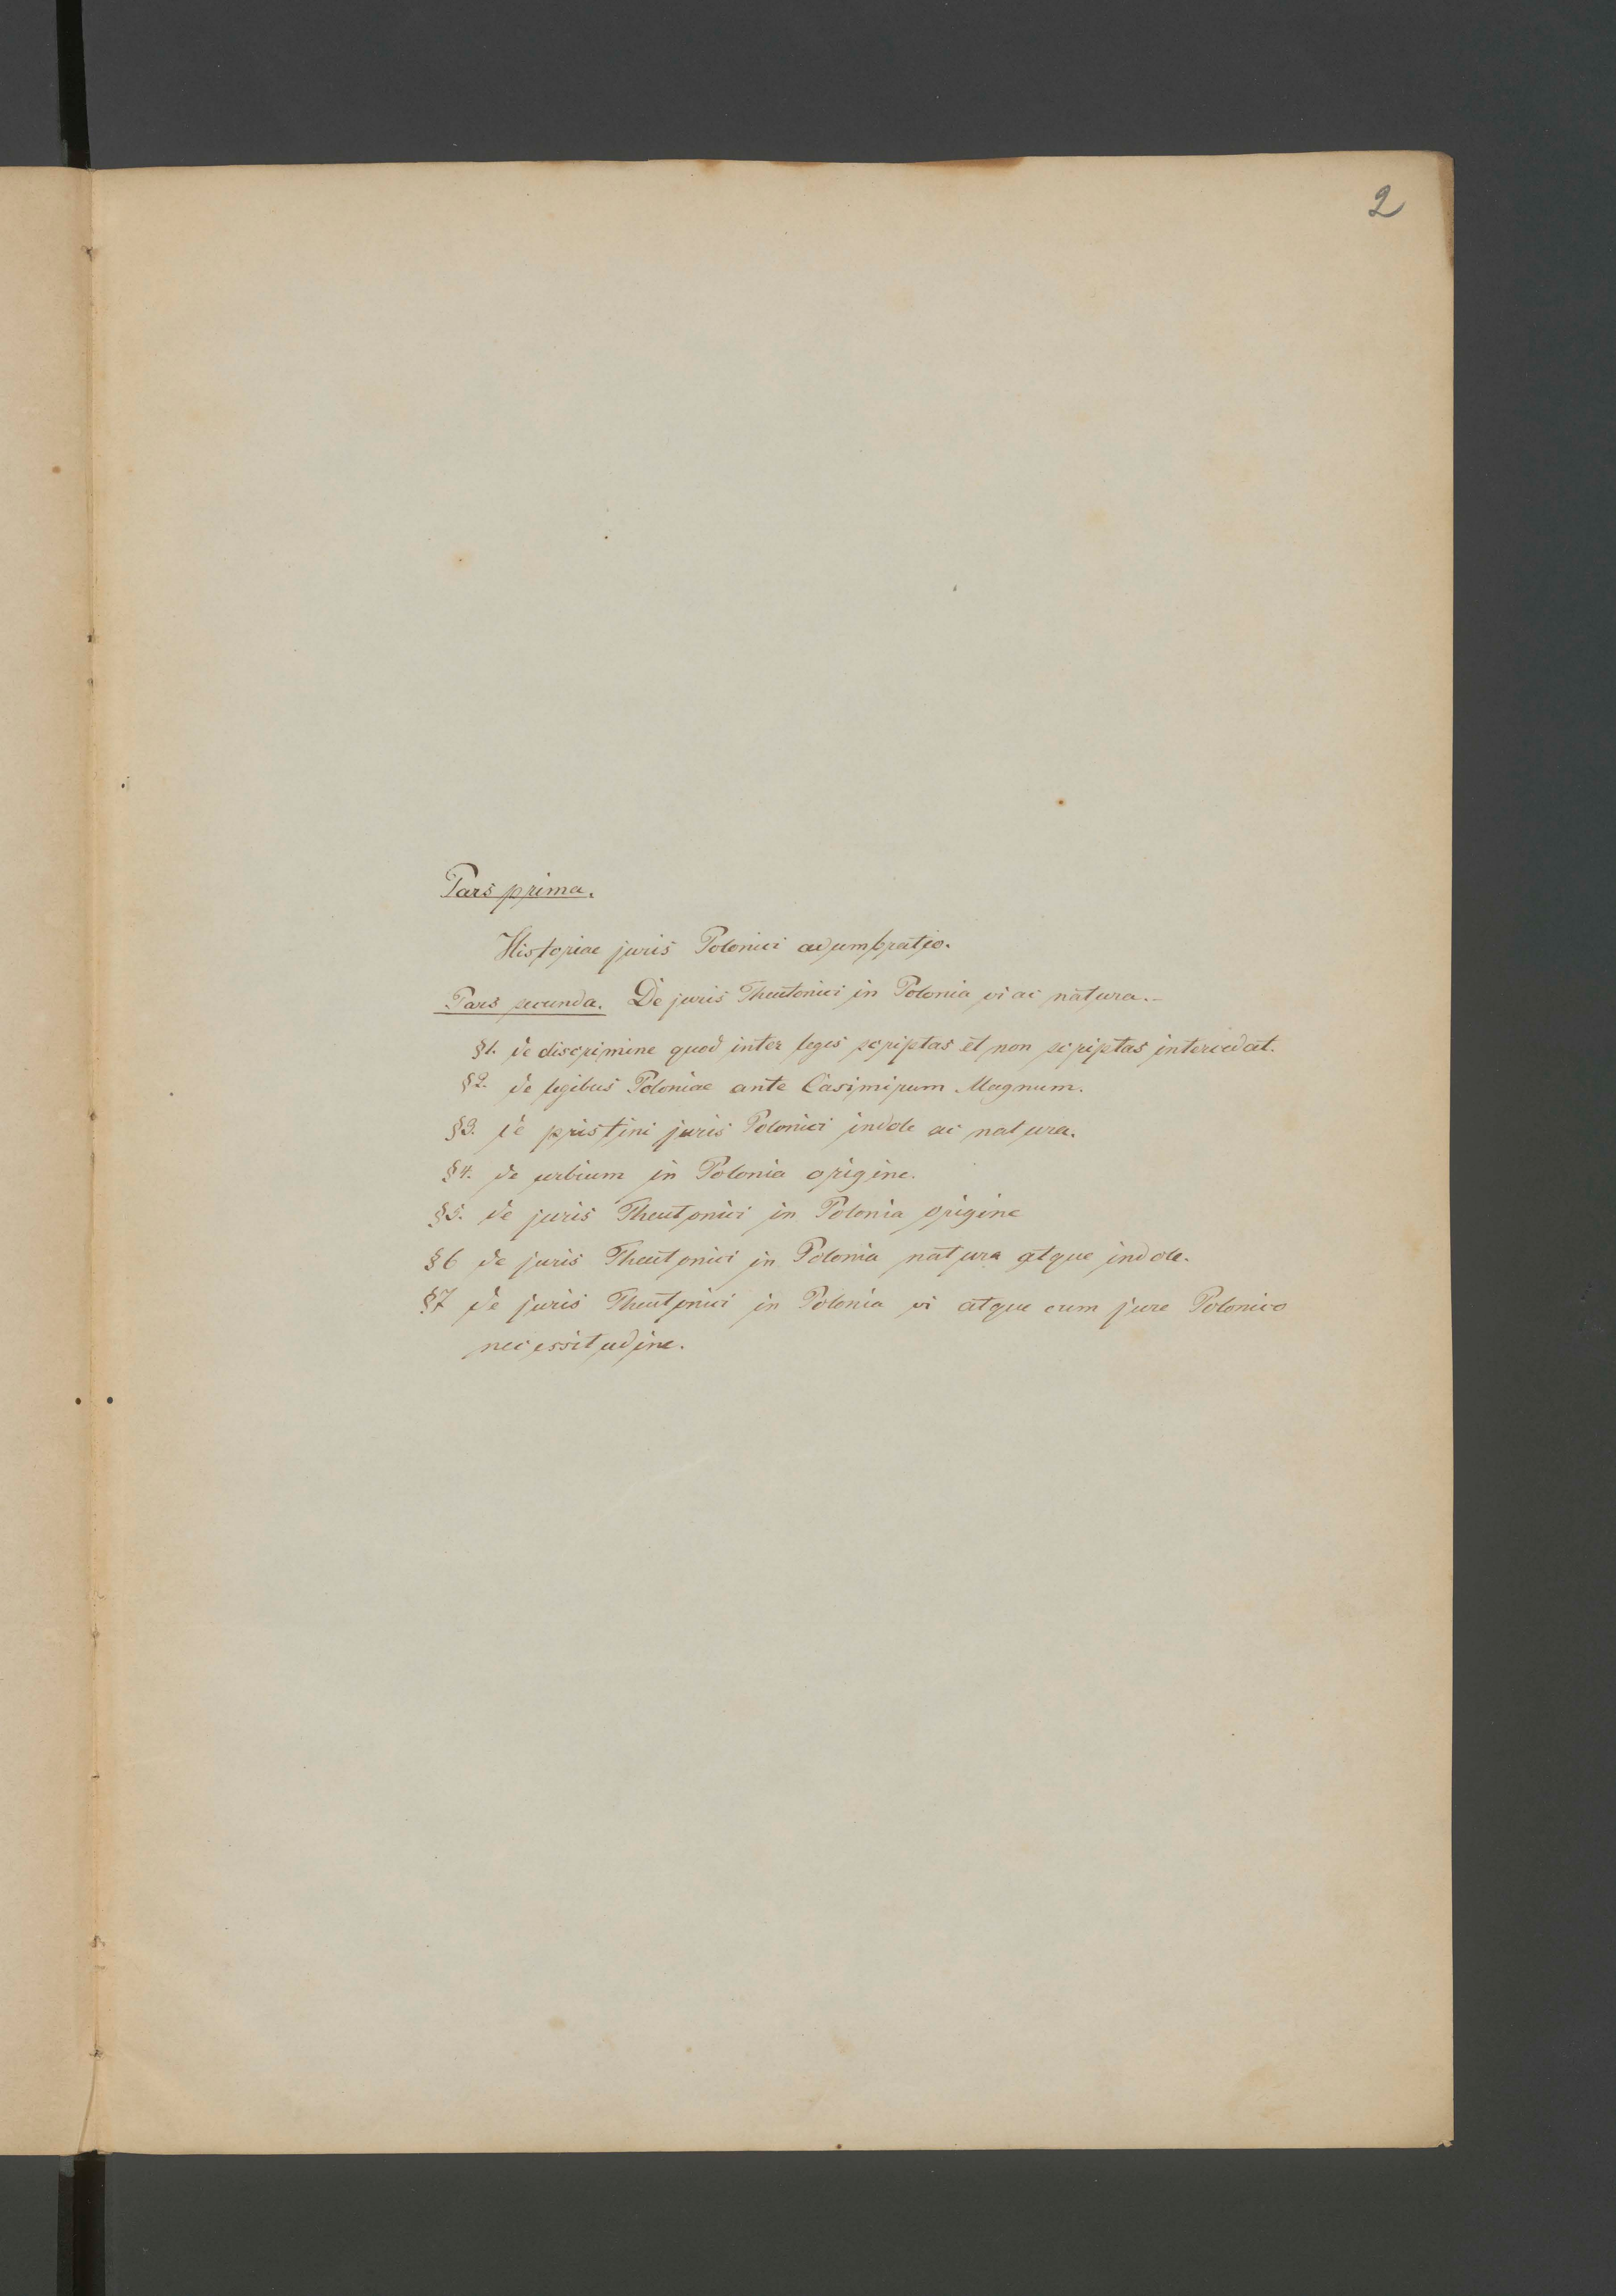 2
Pars prima.
Historiae juris Polonici adumbratio.
Pars secunda. De juris Theutonici in Polonia vi ac natura.-
§1. de discrimine quod inter leges scriptas et non scriptas intercedat.
§2. de legibus Poloniae ante Casimirum Magnum.
§3. de pristini juris Polonici indole ac natura.
§4. de urbium in Polonia origine.
§5. de juris Theutonici in Polonia origine
§6 de juris Theutonici in Polonia natura atque indole.
§7 de juris Theutonici in Polonia vi atque cum jure Polonico
necessitudine.